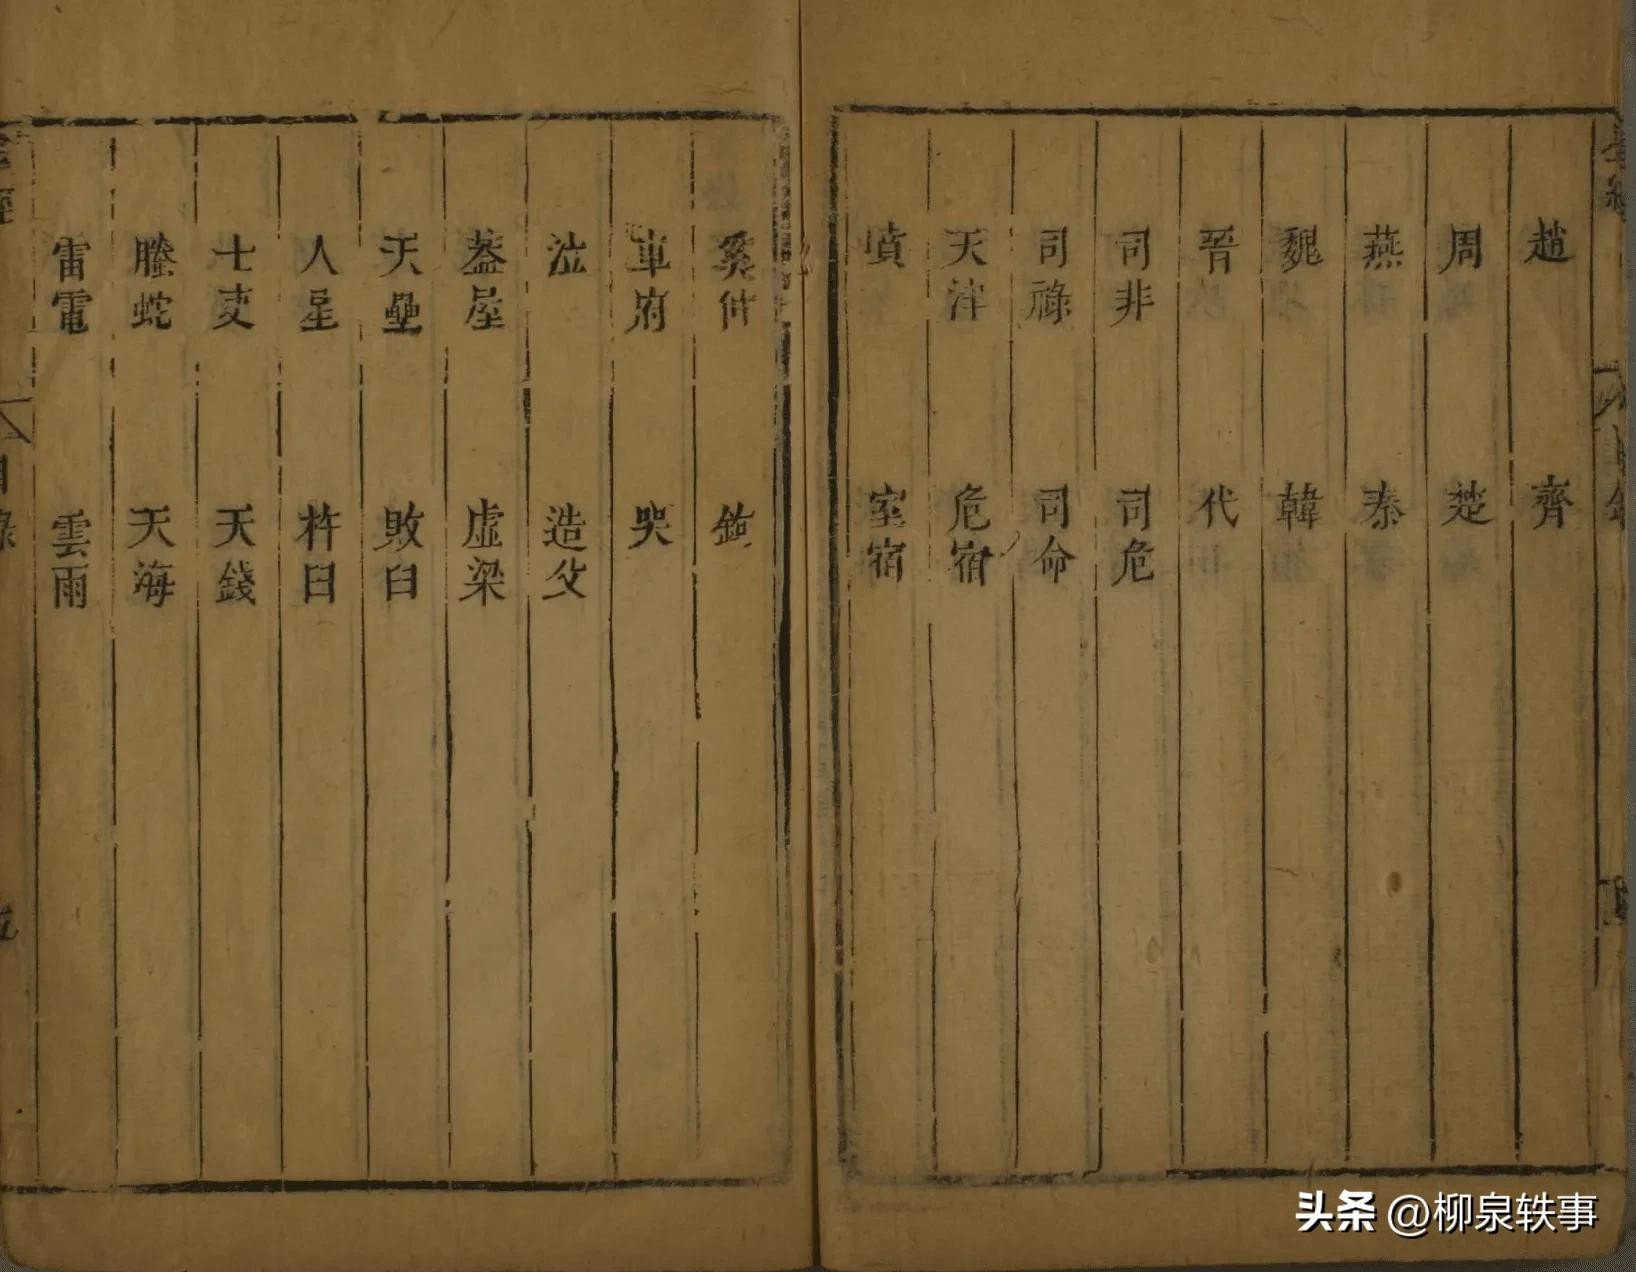 趙　齊
周　楚
燕　秦
魏　韓
晉　代
司非　司危
司祿　司命
天津　危宿
墳　室宿
奚仲　鈎
車府　哭
泣　造父
蓋屋　虛梁
天壘　敗臼
人星　杵臼
土吏　天錢
螣蛇　天海
雷電　雲雨
头条 @柳泉轶事